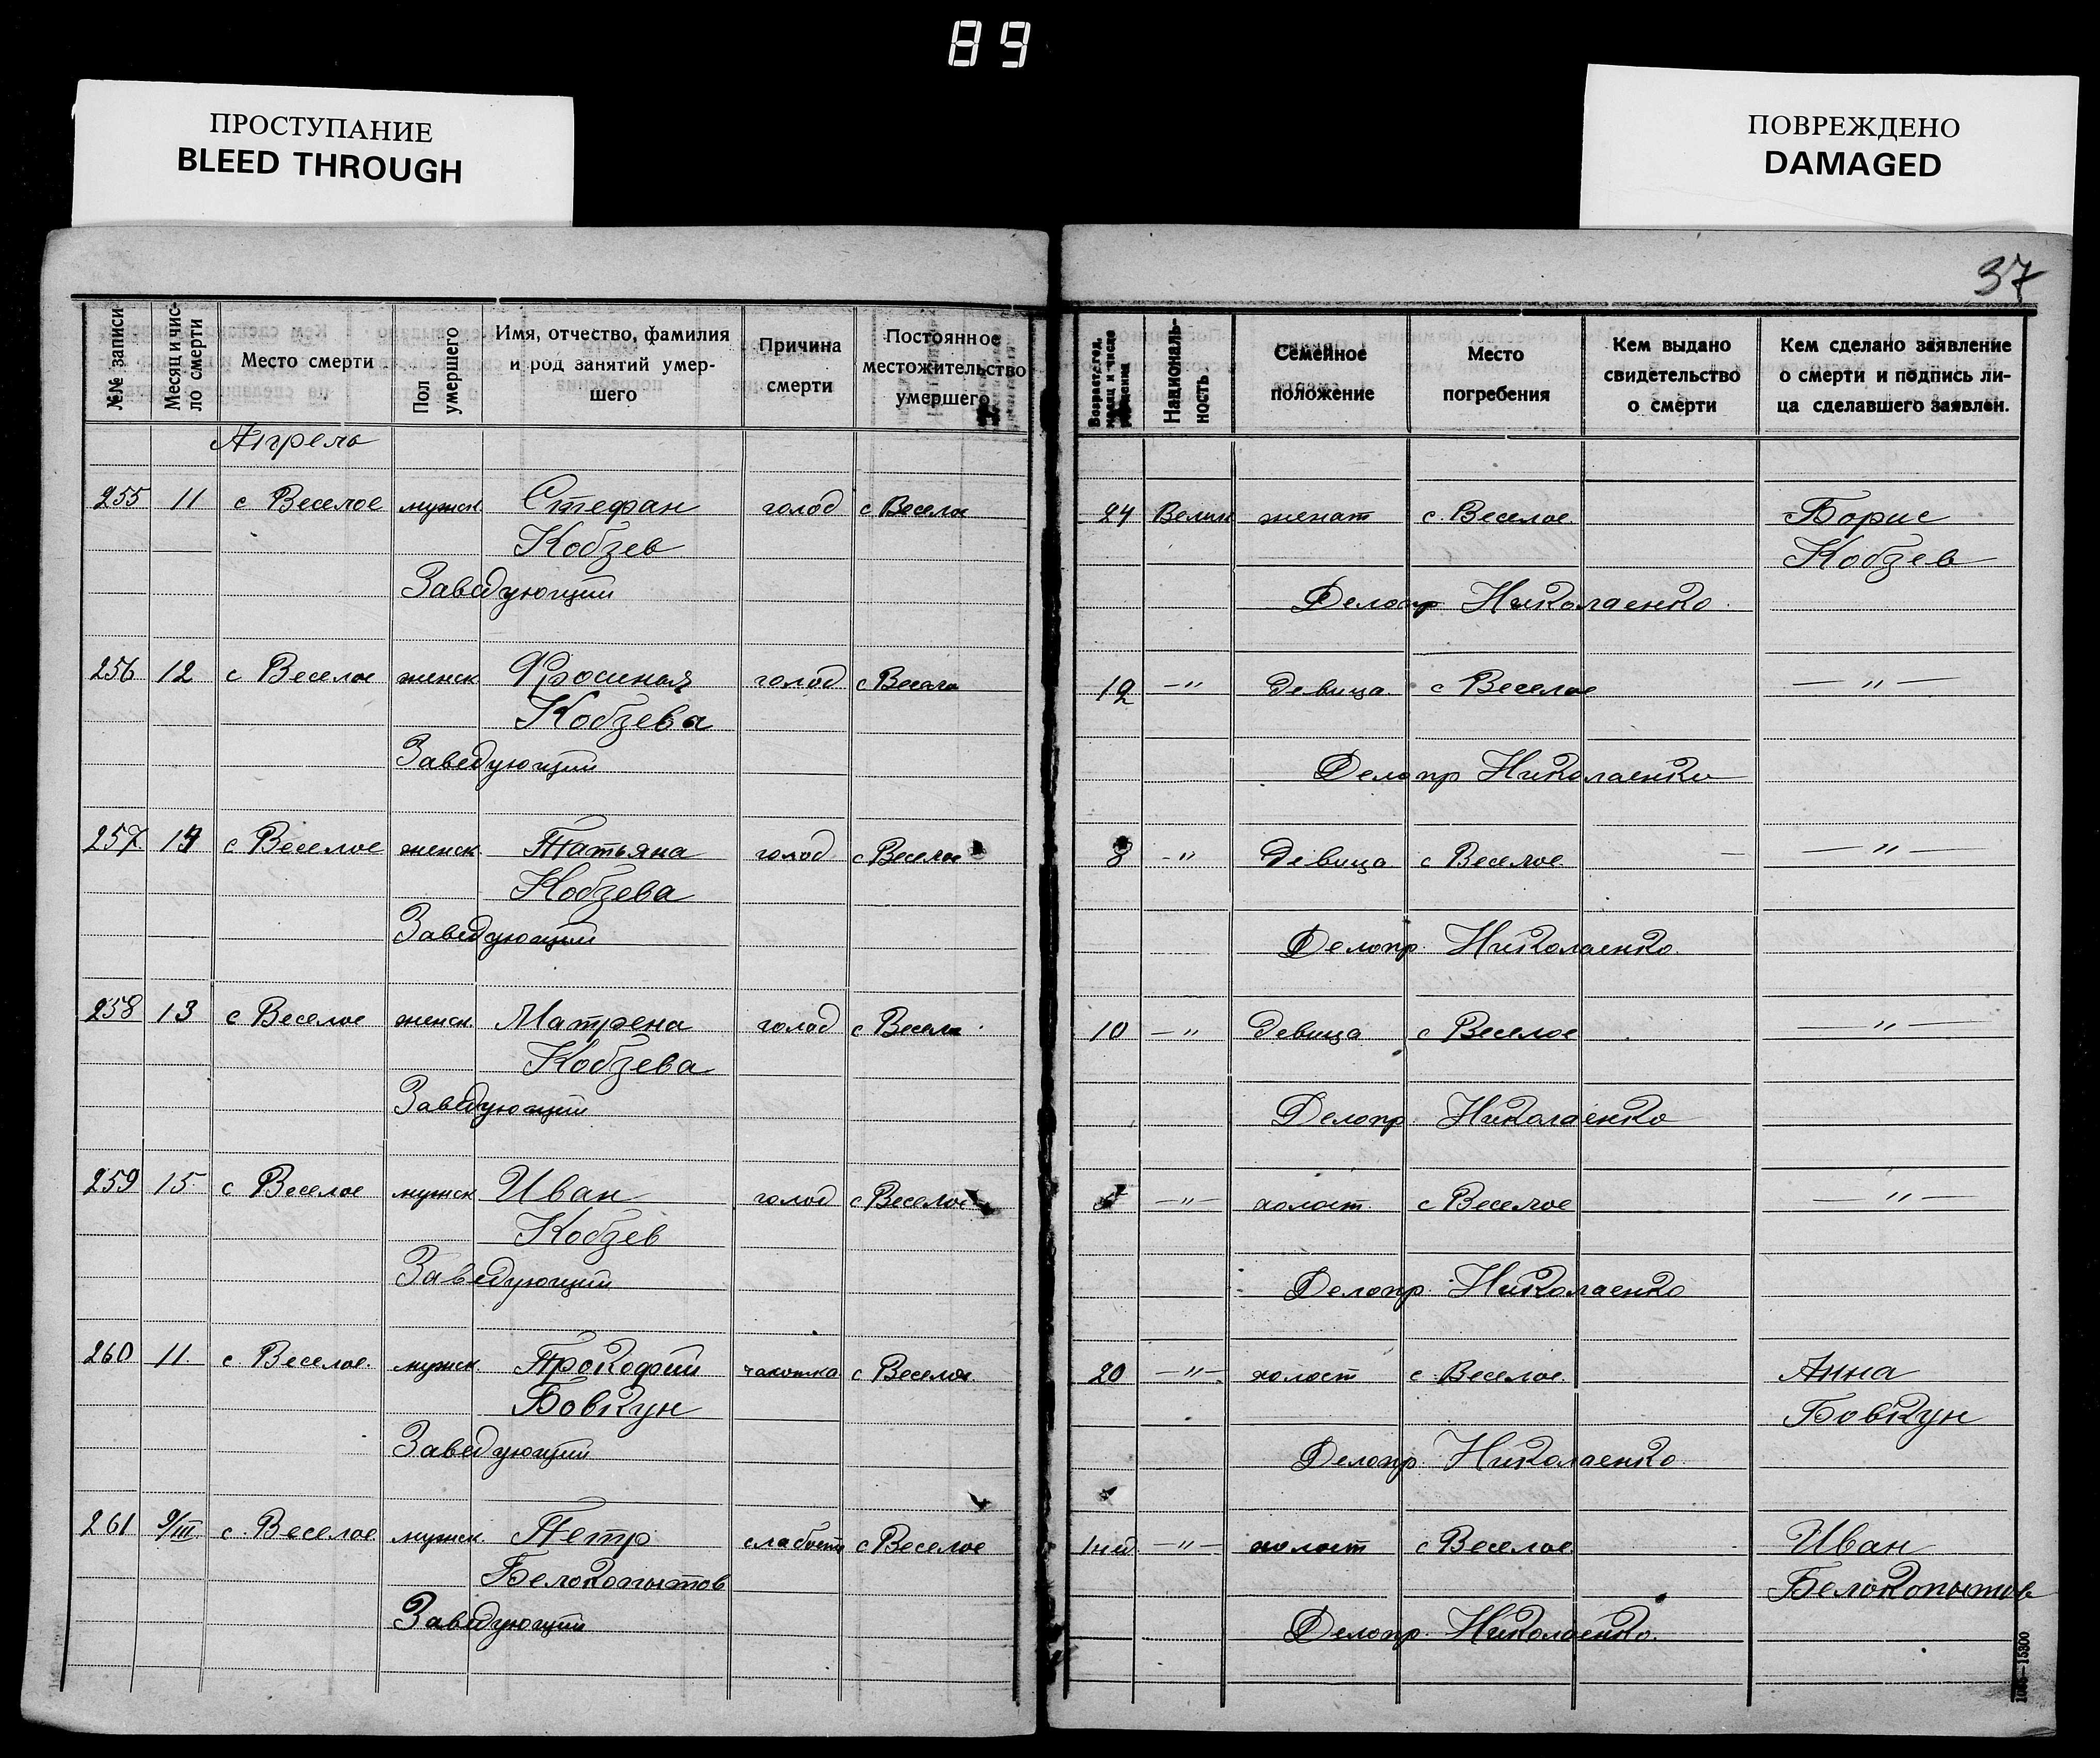 89
ПРОСТУПАНИЕ
BLEED THROUGH
ПОВРЕЖДЕНО
DAMAGED
37
№№ записи
Месяц и чис-
ло смерти
Место смерти
Пол
умершего
Имя, отчество, фамилия
и род занятий умер-
шего
Причина
смерти
Постоянное
местожительство
умершего
Возраст, год,
месяц и число
рождения
Националь-
ность
Семейное
положение
Место
погребения
Кем выдано
свидетельство
о смерти
Кем сделано заявление
о смерти и подпись ли-
ца сделавшего заявлен.
Апрель
255 11 с Веселое мужск Стефан голод с Веселое 24 Велик женат с. Веселое. Борис
Кобзев Кобзев
Заведующий Делопр Николаенко.
256 12 с Веселое женск Фросинья голод с Веселое 19 —"— девица с Веселое —"—
Кобзева
Заведующий Делопр Николаенко
257 с Веселое женск. Татьяна голод с Веселое 8 —"— девица с Веселое. —"—
Кобзева
Заведующий Делопр. Николаенко.
258 13 с Веселое женск. Матрена голод с Веселое 10 —"— девица с Веселое —"—
Кобзева
Заведующий Делопр. Николаенко
259 15 с Веселое мужск Иван голод с Веселое —"— холост. с Веселое —"—
Кобзев
Заведующий Делопр. Николаенко
260 11. с. Веселое. мужск. Прокофий чахотка с Веселое 20 —"— холост с. Веселое. Анна
Бовкун Бовкун
Заведующий Делопр. Николаенко
261 9/III. с. Веселое мужск. Петр слабость с Веселое 1 нед. —"— холост с Веселое Иван
Белокопытов Белокопытов
Заведующий Делопр. Николаенко.